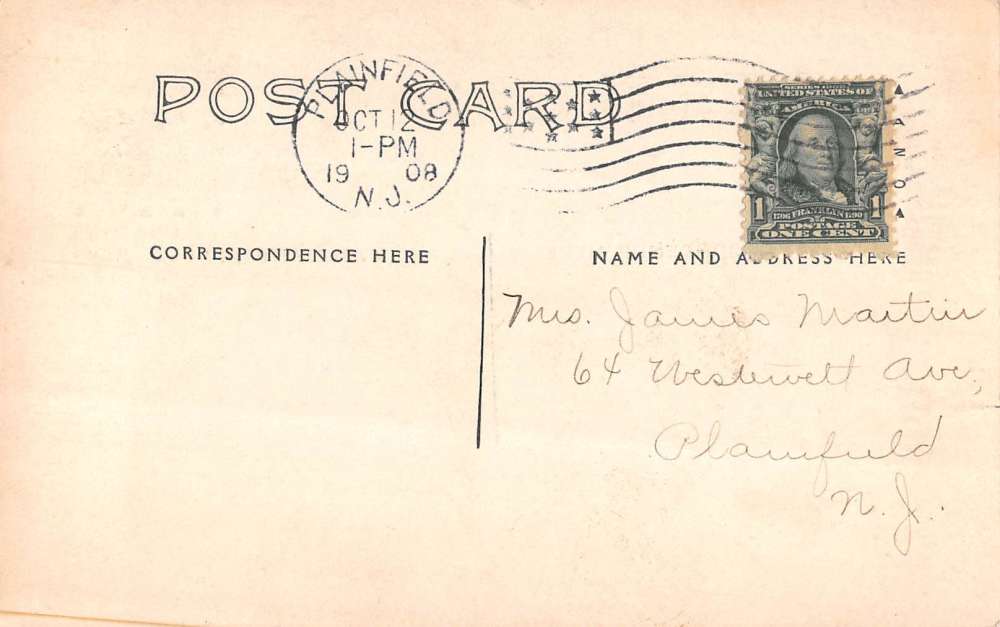 POST CARD
PLAINFIELD
OCT 12
1-PM
19 08
N.J.
SERIES
UNITED STATES OF
AMERICA
1 1706 FRANKLIN 1790 1
POSTAGE
ONE CENT
AZO
CORRESPONDENCE HERE
NAME AND ADDRESS HERE
Mrs. James Martin
64 Westervelt Ave,
Plainfield
N. J.